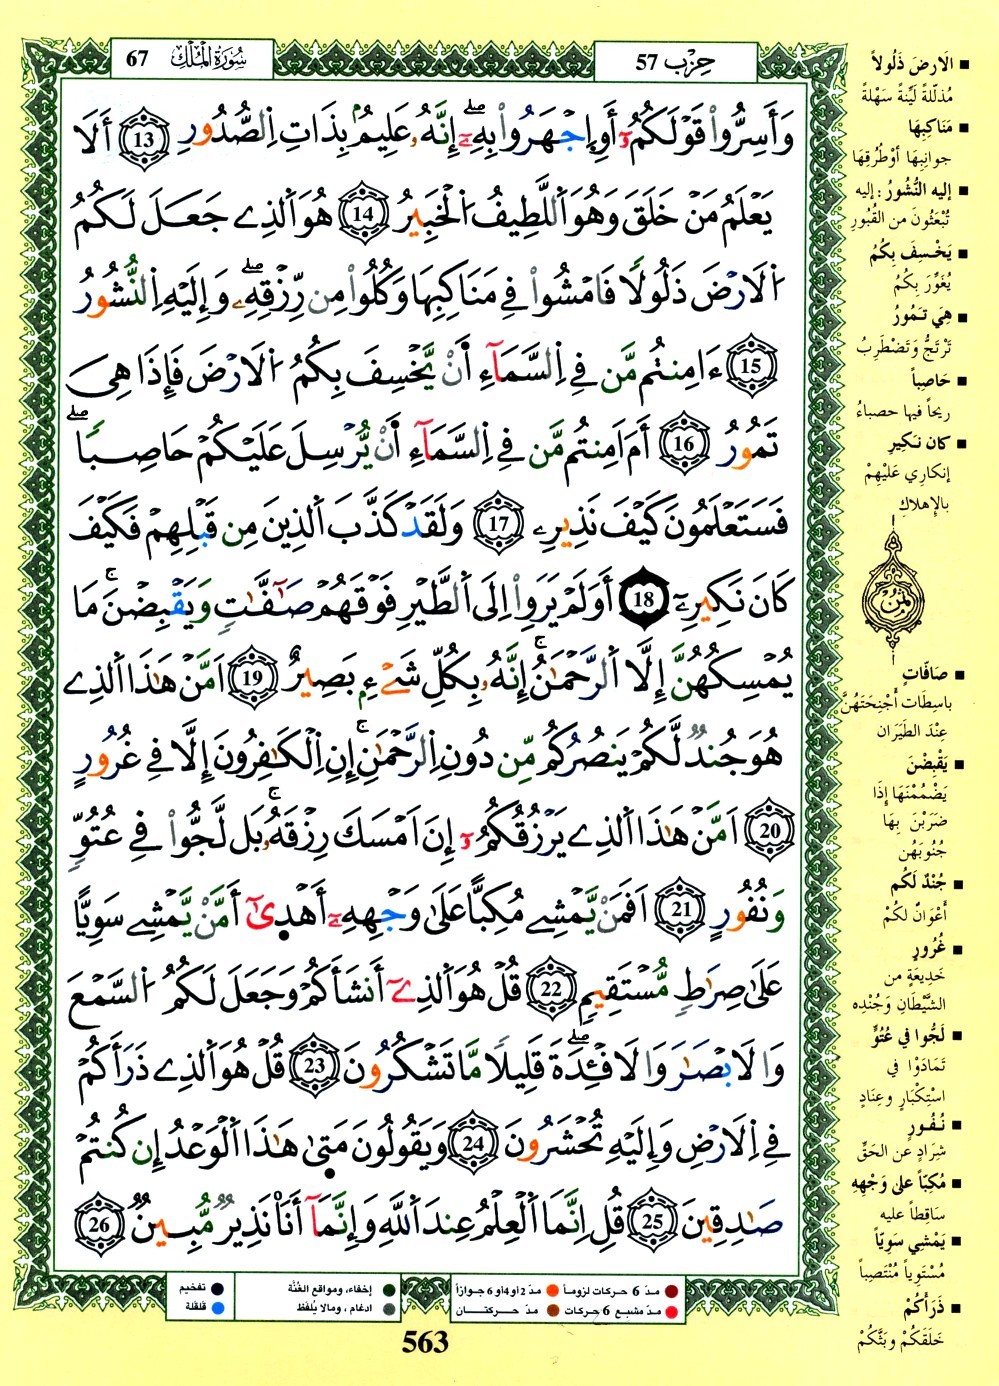 سُورَةُ الْمُلْكِ 67
حِزْب 57
وَأَسِرُّواْ قَوْلَكُمُۥٓ أَوِ اِ۪جْهَرُواْ بِهِۦٓۖ إِنَّهُۥ عَلِيمُۢ بِذَاتِ اِ۬لصُّدُورِ 13 أَلَا
يَعْلَمُ مَنْ خَلَقَ وَهُوَ اَ۬للَّطِيفُ اُ۬لْخَبِيرُ 14 هُوَ اَ۬لذِے جَعَلَ لَكُمُ
اُ۬لَارْضَ ذَلُولاٗ فَامْشُواْ فِے مَنَاكِبِهَا وَكُلُواْ مِن رِّزْقِهِۦۖ وَإِلَيْهِ اِ۬لنُّشُورُ
15 ءَا۬مِنتُم مَّن فِے اِ۬لسَّمَآءِ اَ۬نْ يَّخْسِفَ بِكُمُ اُ۬لَارْضَ فَإِذَا هِيَ
تَمُورُ 16 أَمَ اَمِنتُم مَّن فِے اِ۬لسَّمَآءِ اَ۬نْ يُّرْسِلَ عَلَيْكُمْ حَاصِباٗۖ
فَسَتَعْلَمُونَ كَيْفَ نَذِيرِۦ 17 وَلَقَدْ كَذَّبَ اَ۬لذِينَ مِن قَبْلِهِمْ فَكَيْفَ
كَانَ نَكِيرِۦٓ 18 أَوَلَمْ يَرَوِاْ اِلَى اَ۬لطَّيْرِ فَوْقَهُمْ صَٰٓفَّٰتٖ وَيَقْبِضْنَۚ مَا
يُمْسِكُهُنَّ إِلَّا اَ۬لرَّحْمَٰنُۚ إِنَّهُۥ بِكُلِّ شَےْءِۢ بَصِيرٌ 19 اَمَّنْ هَٰذَا اَ۬لذِے
هُوَ جُندٞ لَّكُمْ يَنصُرُكُم مِّن دُونِ اِ۬لرَّحْمَٰنِۚ إِنِ اِ۬لْكَٰفِرُونَ إِلَّا فِے غُرُورٍ
20 اَمَّنْ هَٰذَا اَ۬لذِے يَرْزُقُكُمُۥٓ إِنَ اَمْسَكَ رِزْقَهُۥۚ بَل لَّجُّواْ فِے عُتُوّٖ
وَنُفُورٍ 21 اَفَمَنْ يَّمْشِے مُكِبّاً عَلَىٰ وَجْهِهِۦٓ أَهْد۪ىٰٓ أَمَّنْ يَّمْشِے سَوِيّاً
عَلَىٰ صِرَٰطٖ مُّسْتَقِيمٖ 22 قُلْ هُوَ اَ۬لذِےٓ أَنشَأَكُمْ وَجَعَلَ لَكُمُ اُ۬لسَّمْعَ
وَالَابْصَٰرَ وَالَافْـِٕدَةَۖ قَلِيلاٗ مَّا تَشْكُرُونَ 23 قُلْ هُوَ اَ۬لذِے ذَرَأَكُمْ
فِے اِ۬لَارْضِ وَإِلَيْهِ تُحْشَرُونَ 24 وَيَقُولُونَ مَت۪ىٰ هَٰذَا اَ۬لْوَعْدُ إِن كُنتُمْ
صَٰدِقِينَ 25 قُلِ اِنَّمَا اَ۬لْعِلْمُ عِندَ اَ۬للَّهِ وَإِنَّمَآ أَنَا نَذِيرٞ مُّبِينٞ 26
الَارضَ ذَلُولاً
مُذَلَّلَةً لَيِّنَةً سَهْلةً
مَنَاكِبِهَا
جوانِبِهَا أوْطُرُقِهَا
إليهِ النُّشُورُ : إليه
تُبْعَثُونَ من القُبُورِ
يَخْسِفَ بِكُمُ
يُغَوِّرَ بِكُمُ
هِيَ تَمُورُ
تَرْتَجُّ وتَضْطَرِبُ
حَاصِباً
ريحاً فيها حصباءُ
كان نَكيرِ
إنكارِي عَلَيْهِمْ
بالإهلاكِ
ثُمُن
صَافّاتٍ
باسِطَات أَجْنِحَتَهُنَّ
عِنْدَ الطَيَرَان
يَقْبِضْنَ
يَضْمُمْنَهَا إِذَا
ضَرَبْنَ بِهَا
جُنُوبَهُن
جُنْدٌ لَكُم
أَعْوَانٌ لكُمْ
غُرُورٍ
خَدِيعَةٍ من
الشَّيْطَانِ وَجُنْدِه
لَجُّوا في عُتُوٍّ
تَمَادَوْا في
اسْتِكْبَارٍ وعِنَادٍ
نُـفُـورٍ
شِرَادٍ عن الحَقِّ
مُكِبّاً على وَجْهِهِ
سَاقِطاً عليه
يَمْشِي سَوِيّاً
مُسْتَوِياً مُنْتَصِباً
ذَرَأكُمْ
خَلَقَكُمْ وبَثَّكُمْ
مدّ 6 حركات لزوماً
مدّ 2 أو 4 أو 6 جوازاً
إخفاء، ومواقع الغُنَّة
تفخيم
مدّ مشبع 6 حركات
مدّ حركتـــان
ادغام ، ومالا يُلفظ
قلقلة
563